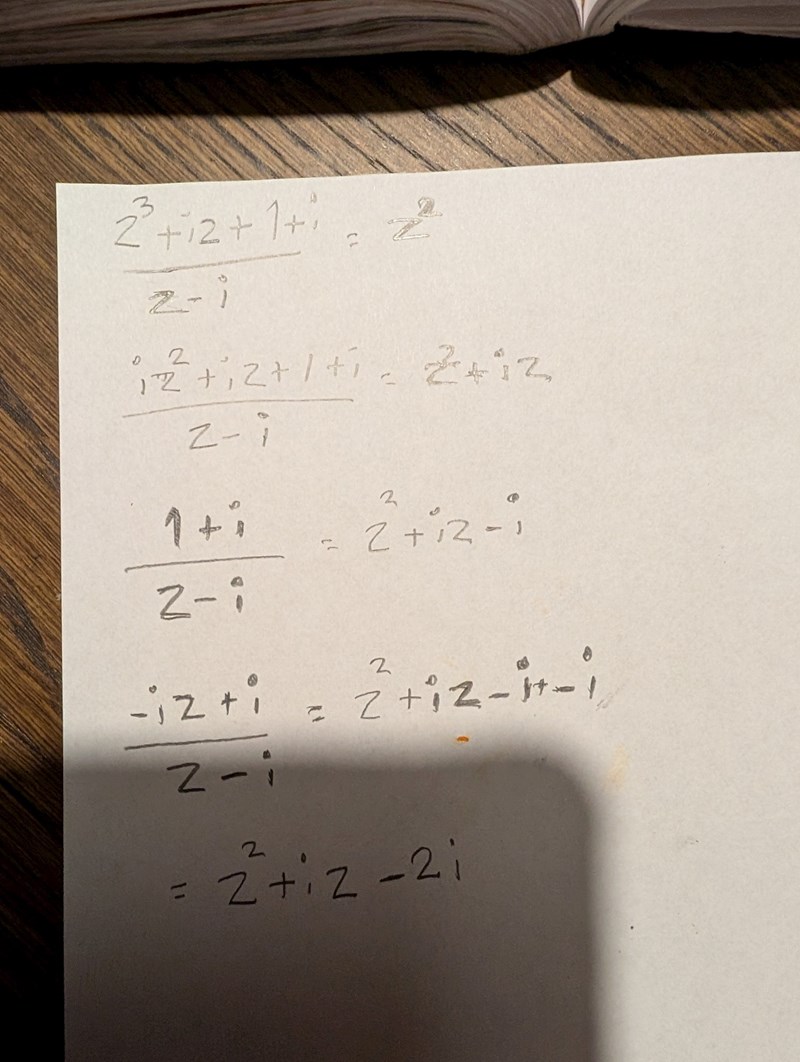 z³+iz+1+i / z-i = z²
iz²+iz+1+i / z-i = z²+iz
1+i / z-i = z²+iz-i
-iz+i / z-i = z²+iz-i+-i
= z²+iz-2i